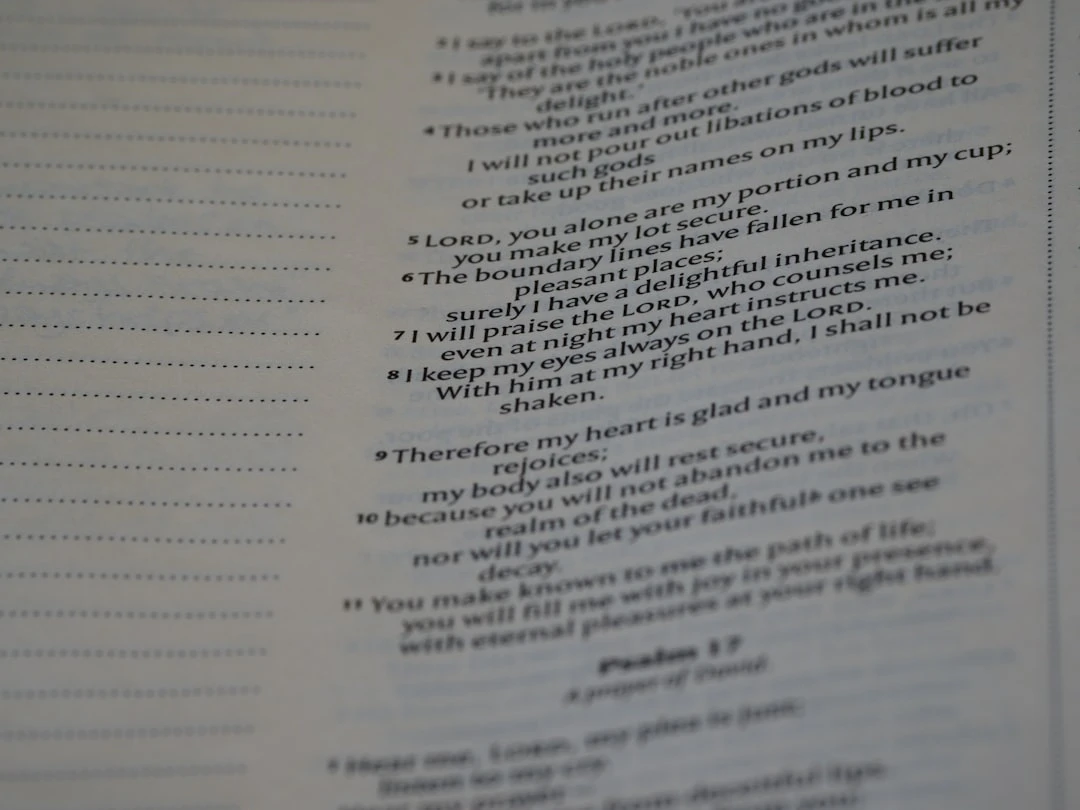 2 I say to the LORD, "You are
apart from you I have no good
3 I say of the holy people who are in the
"They are the noble ones in whom is all my
delight."
4 Those who run after other gods will suffer
more and more.
I will not pour out libations of blood to
such gods
or take up their names on my lips.
5 LORD, you alone are my portion and my cup;
you make my lot secure.
6 The boundary lines have fallen for me in
pleasant places;
surely I have a delightful inheritance.
7 I will praise the LORD, who counsels me;
even at night my heart instructs me.
8 I keep my eyes always on the LORD.
With him at my right hand, I shall not be
shaken.
9 Therefore my heart is glad and my tongue
rejoices;
my body also will rest secure,
10 because you will not abandon me to the
realm of the dead,
nor will you let your faithful b one see
decay.
11 You make known to me the path of life;
you will fill me with joy in your presence,
with eternal pleasures at your right hand.
Psalm 17
A prayer of David.
1 Hear me, LORD, my plea is just;
listen to my cry.